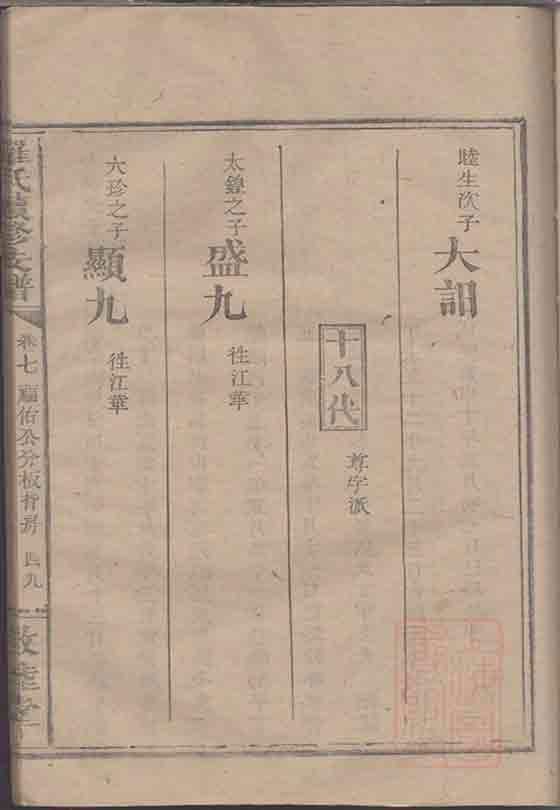 睦生次子 大詔
十八代 尊字派
太鐐之子 盛九 徃江華
六珍之子 顯九 徃江華
羅氏續修支譜
卷七 福佑公分板背房 四九
敦睦堂